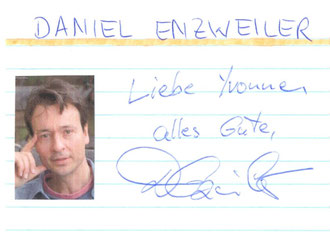 DANIEL ENZWEILER
Liebe Yvonne,
alles Gute,